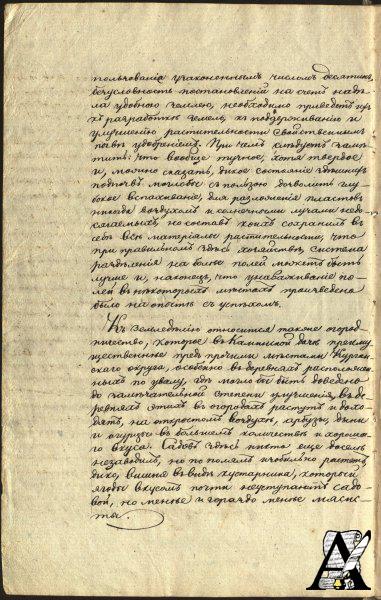 пользованія узаконеннымъ числомъ десятинъ,
безусловность постановленій на счетъ надѣ-
ла удобною землею, необходимо приведетъ и
къ разработкѣ земель, къ поддержанію и
улучшенію растительности свойственнымъ
почвѣ удобреніемъ. При чемъ слѣдуетъ замѣ-
тить: что вообще тучное, хотя твердое
и, можно сказать, дикое состояніе здѣшнихъ
подпочвъ могло бы съ пользою дозволить глу-
бокое вспахиваніе, для разложенія пластовъ
никогда воздухомъ и солнечными лучами недо-
сягаемыхъ, но составъ коихъ сохранилъ въ
себѣ всѣ матеріалы растительности, что
при правильномъ здѣсь хозяйствѣ, система
раздѣленія на болѣе полей можетъ быть
лучше и, наконецъ, что унаваживаніе по-
лей въ нѣкоторыхъ мѣстахъ произведено
было на опытѣ съ успѣхомъ.
Къ земледѣлію относится также огород-
ничество, которое въ Калминской дачѣ преиму-
щественно предъ прочими мѣстами Курган-
скаго округа, особенно въ деревняхъ расположен-
ныхъ по увалу, могло бы быть доведено
до замѣчательной степени улучшенія, въ де-
ревняхъ этихъ въ огородахъ растутъ и дохо-
дятъ, на открытомъ воздухѣ, арбузы, дыни
и огурцы въ большемъ количествѣ и хороша-
го вкуса. Садовъ здѣсь никто еще доселѣ
незаводилъ, но по полямъ изобильно растетъ
дико, вишня въ видѣ кустарника, которой
ягоды вкусомъ почти неуступаютъ садо-
вой, но менѣе и гораздо менѣе мясис-
ты.